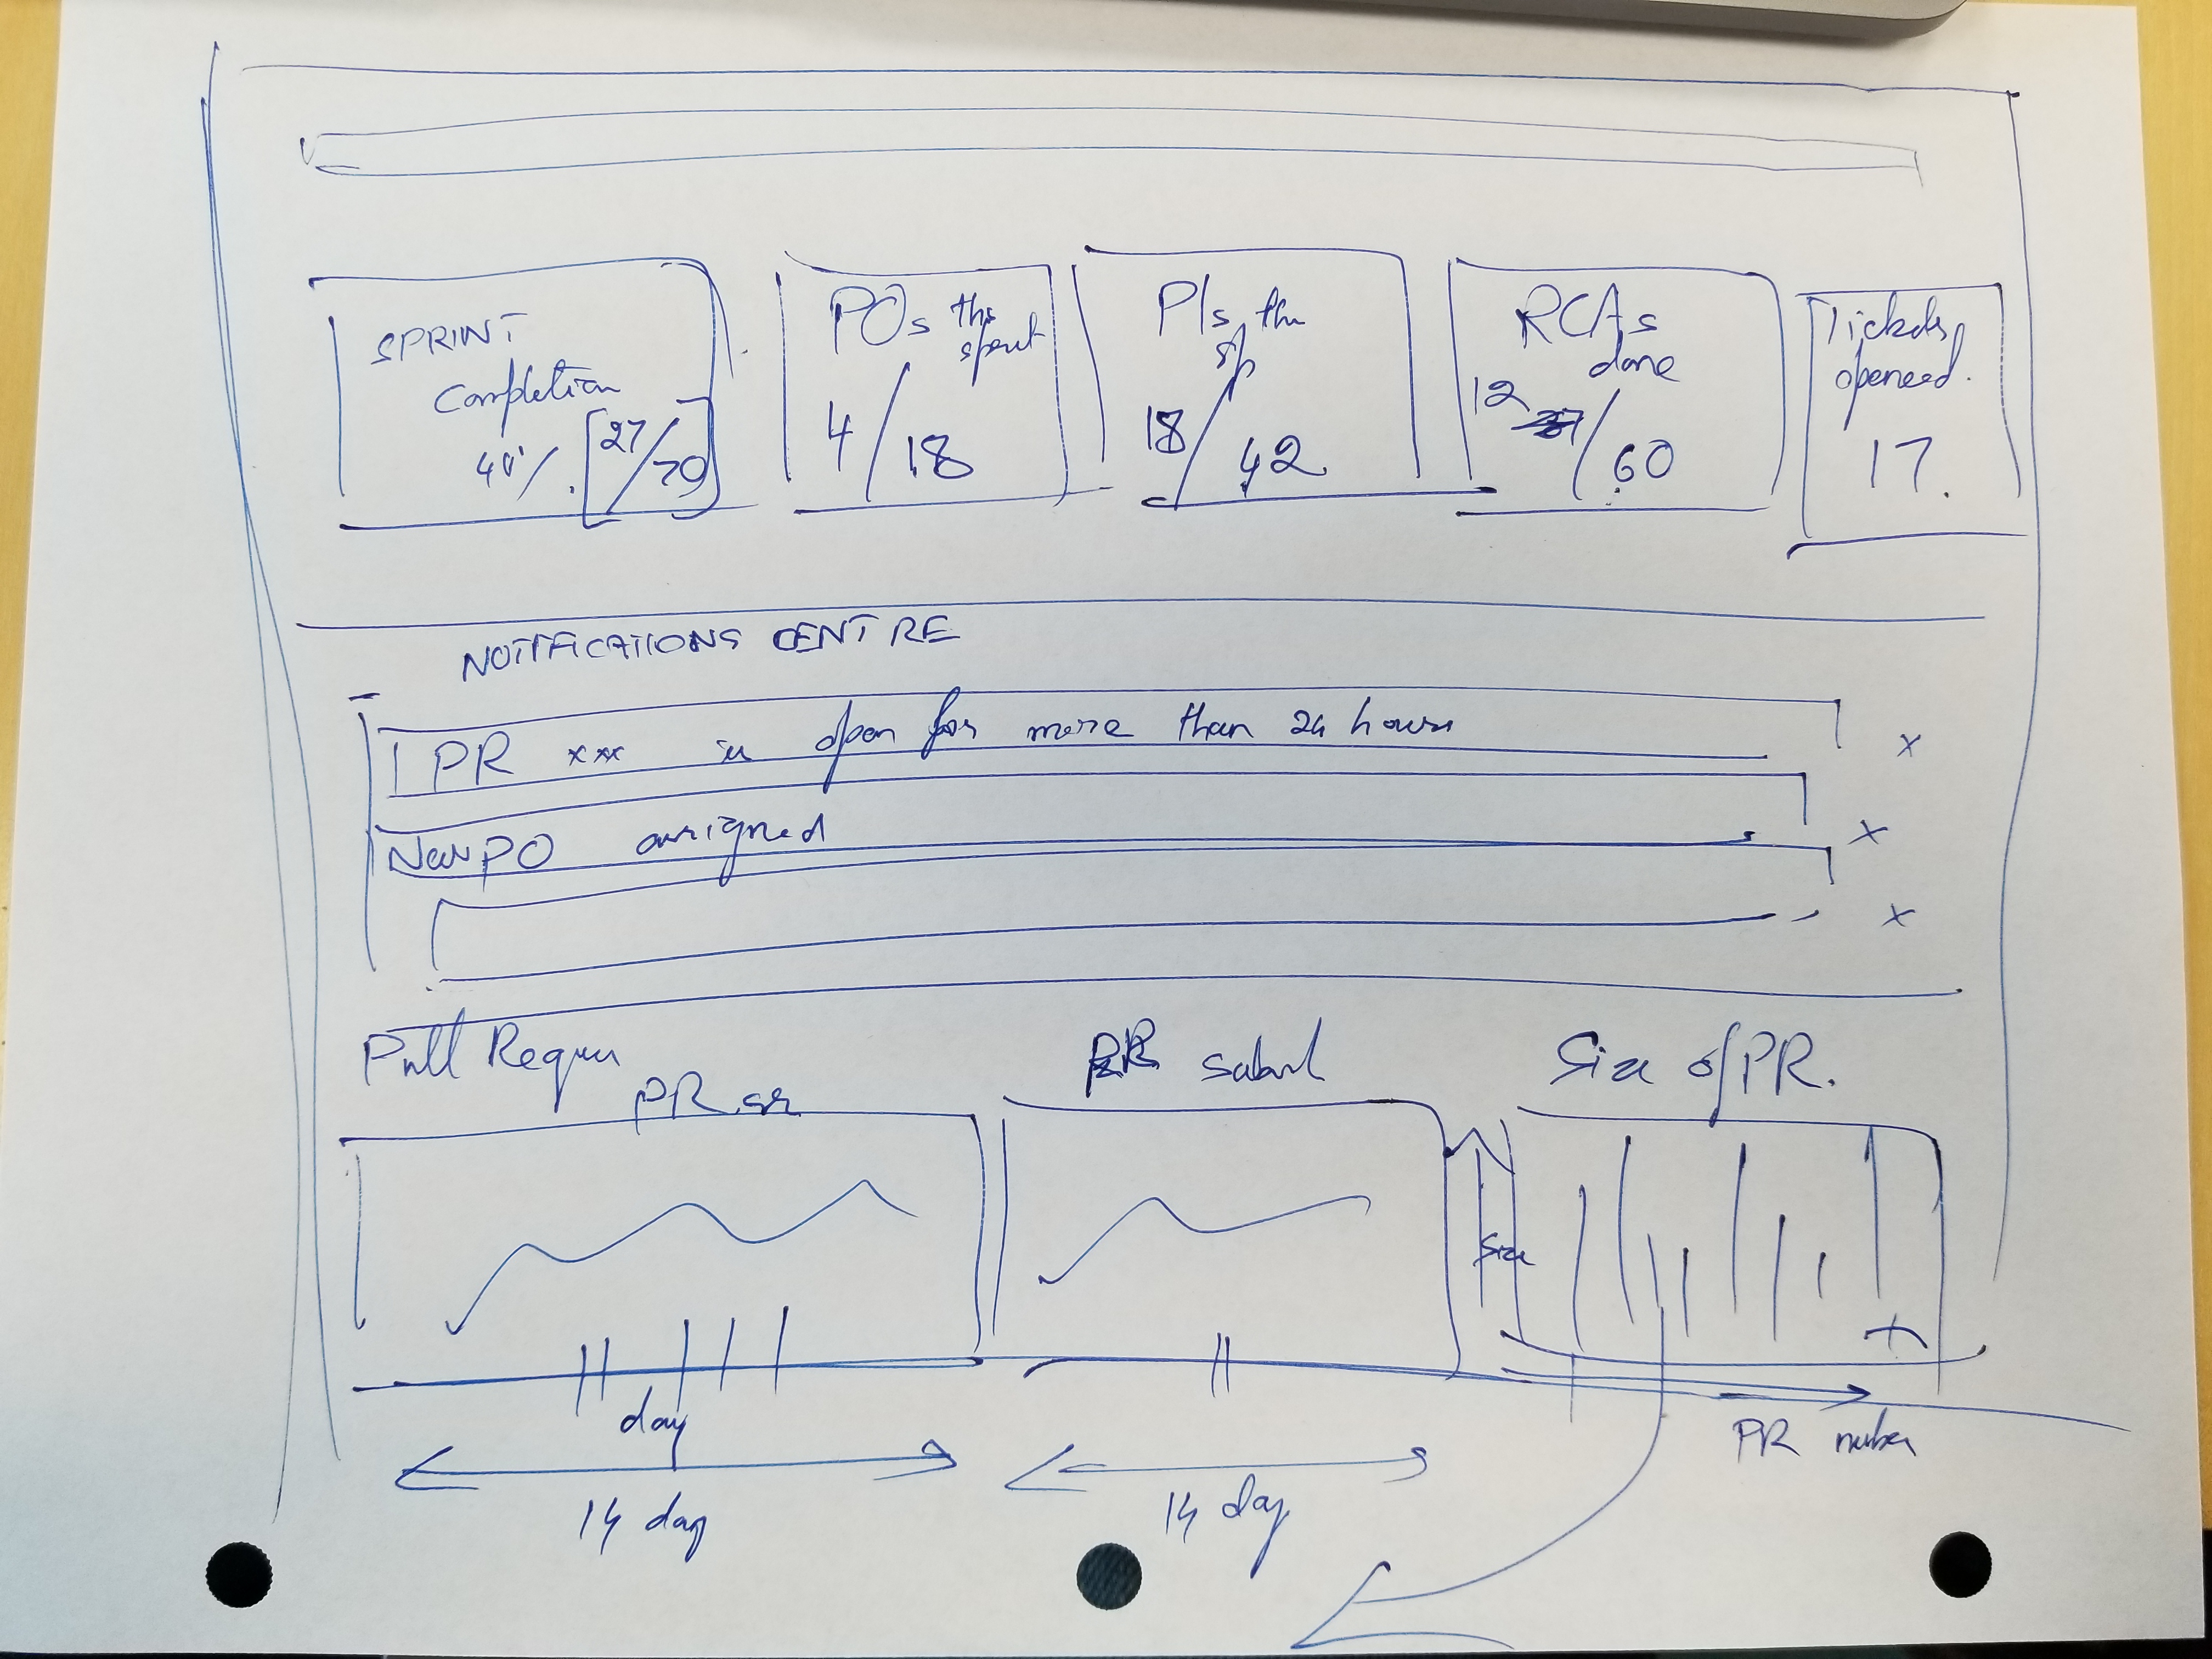 SPRINT
Completion
40%. 27/70
POs this
sprint
4/18
PIs this
Sp
18/42
RCAs
done
12/60
Tickets
opened.
17.
NOTIFICATIONS CENTRE
PR xxx is open for more than 24 hours x
New PO assigned x
x
Pull Reques PR
PR
Size of PR.
Size
day
14 day
14 day
PR number